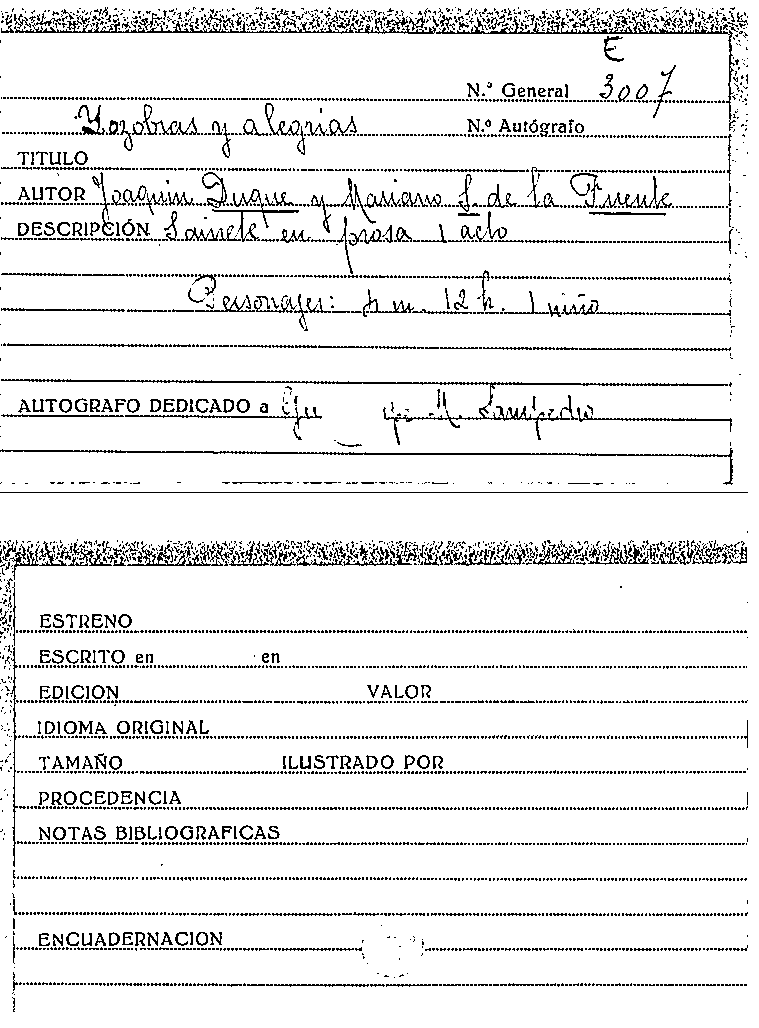 E
N.º General 3007
Zozobras y alegrias
N.º Autógrafo
TITULO
AUTOR Joaquin Duque y Mariano S. de la Fuente
DESCRIPCIÓN Sainete en prosa 1 acto
Personajes: m. 12 h. 1 niño
AUTOGRAFO DEDICADO a M. Sampedro
ESTRENO
ESCRITO en en
EDICION VALOR
IDIOMA ORIGINAL
TAMAÑO ILUSTRADO POR
PROCEDENCIA
NOTAS BIBLIOGRAFICAS
ENCUADERNACION